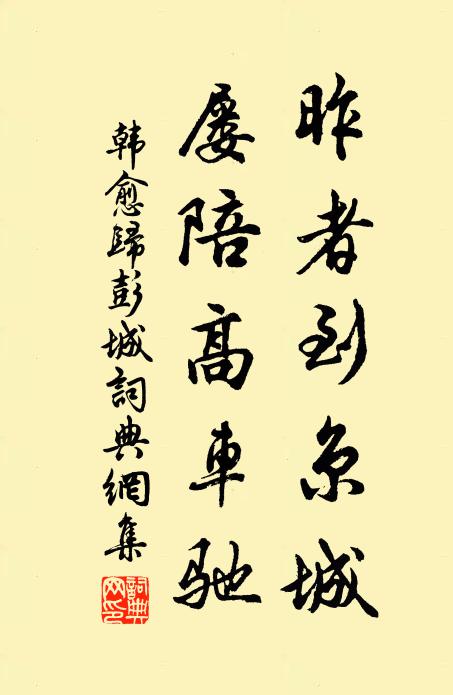 昨者到京城
屡陪高車馳
韩愈歸彭城詞典網集
詞典网印